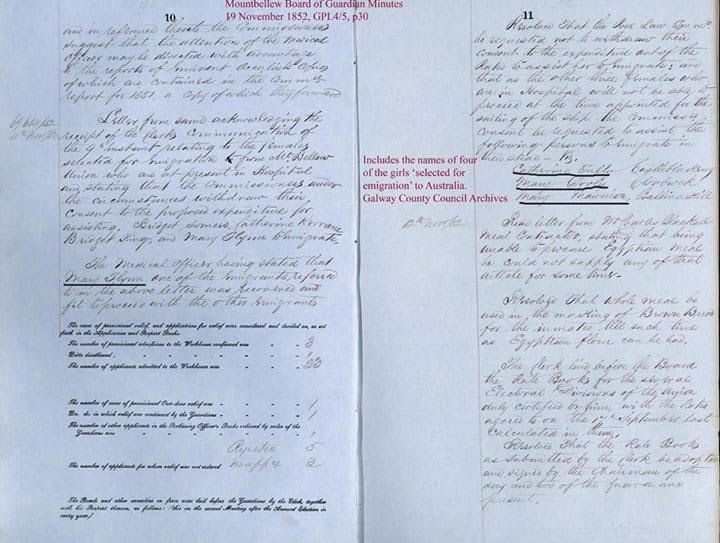 Mountbellew Board of Guardian Minutes
19 November 1852, GPL4/5, p30
10
and in reference thereto the Commissioners
suggest that the attention of the Medical
Officer may be directed with advantage
to the reports of eminent Oculists Copies
of which are contained in the Comm'rs
report for 1851, a copy of which they forward
Letter from same acknowledging the
receipt of the Clerks Communication of
the 9th instant relating to the females
selected for emigration from Mt Bellew
Union who are at present in Hospital
and stating that the Commissioners under
the circumstances withdraw their
Consent to the proposed expenditure for
assisting Bridget Somers, Catherine
Bridget King, and Mary Flynn to Emigrate
The Medical Officer having stated that
Mary Flynn one of the Emigrants referred
to in the above letter was recovered and
fit to proceed with the other Emigrants
The cases of provisional relief, and applications for relief were considered and decided on, as set
forth in the Application and Report Books.
The number of provisional admissions to the Workhouse confirmed was - 3
Ditto disallowed,
The number of applicants admitted to the Workhouse was - 23
The number of cases of provisional Out-door relief was - 1
Do. do. in which relief was continued by the Guardians - 1
The number of other applicants in the Relieving Officer's Books relieved by order of the
Guardians was
Rejected 5
The number of applicants for whom relief was not ordered 2
The Bonds and other securities in force were laid before the Guardians by the Clerk, together
with his Report thereon, as follows: (this on the second Meeting after the Annual Election in
every year,)
11
Resolved That the Poor Law Comm'rs
be requested not to withdraw their
Consent to the expenditure out of the
Rates to assist her to Emigrate, and
that as the other three females who
are in Hospital will not be able to
proceed at the time appointed for the
sailing of the ship the Commissioners
Consent be requested to assist the
following persons to Emigrate in
their stead
Catherine
Mary
Mary
Includes the names of four
of the girls 'selected for
emigration' to Australia.
Galway County Council Archives
Read letter from Mr Charles
Meal Contractor, stating that being
unable to procure Egyptian meal
he could not supply any of that
article for some time
Resolved That whole meal be
used in the making of Brown Bread
for the inmates, till such time
as Egyptian flour can be had.
The Clerk laid before the Board
the Rate Books for the several
Electoral Divisions of the Union
duly certified by him, with the Rates
agreed to on the September last
Calculated in them.
Resolved That the Rate Books
as submitted by the Clerk be adopted
and signed by the Chairman of the
day and two of the Guardians
present.